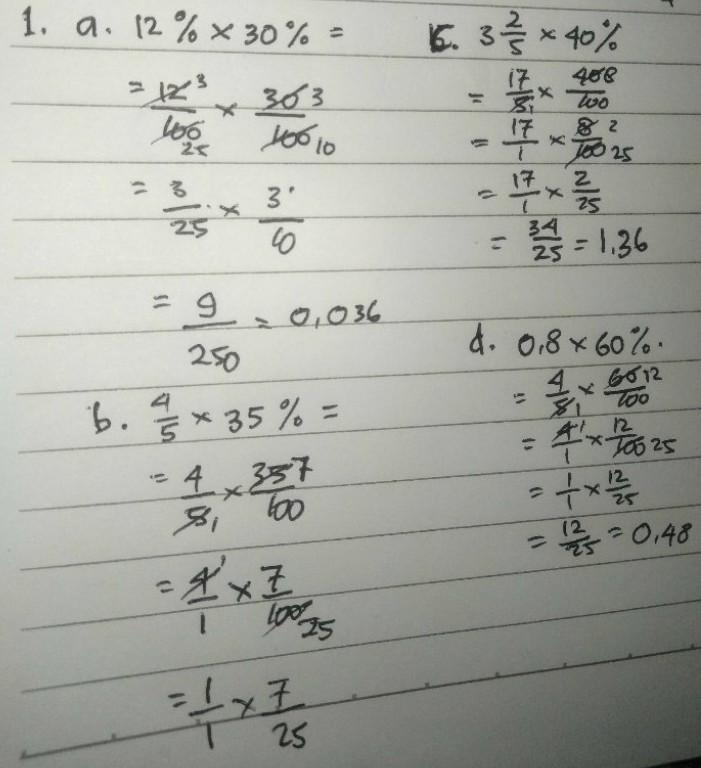 1. a. 12 % × 30 % =
= 12 3 / 100 25 × 30 3 / 100 10
= 3 / 25 × 3 / 10
= 9 / 250 = 0,036
b. 4/5 × 35 % =
= 4 / 5 1 × 35 7 / 100
= 4 1 / 1 × 7 / 100 25
= 1 / 1 × 7 / 25
c. 3 2/5 × 40%
= 17 / 5 1 × 40 8 / 100
= 17 / 1 × 8 2 / 100 25
= 17 / 1 × 2 / 25
= 34 / 25 = 1,36
d. 0,8 × 60%.
= 4 / 5 1 × 60 12 / 100
= 4 1 / 1 × 12 / 100 25
= 1 / 1 × 12 / 25
= 12 / 25 = 0,48